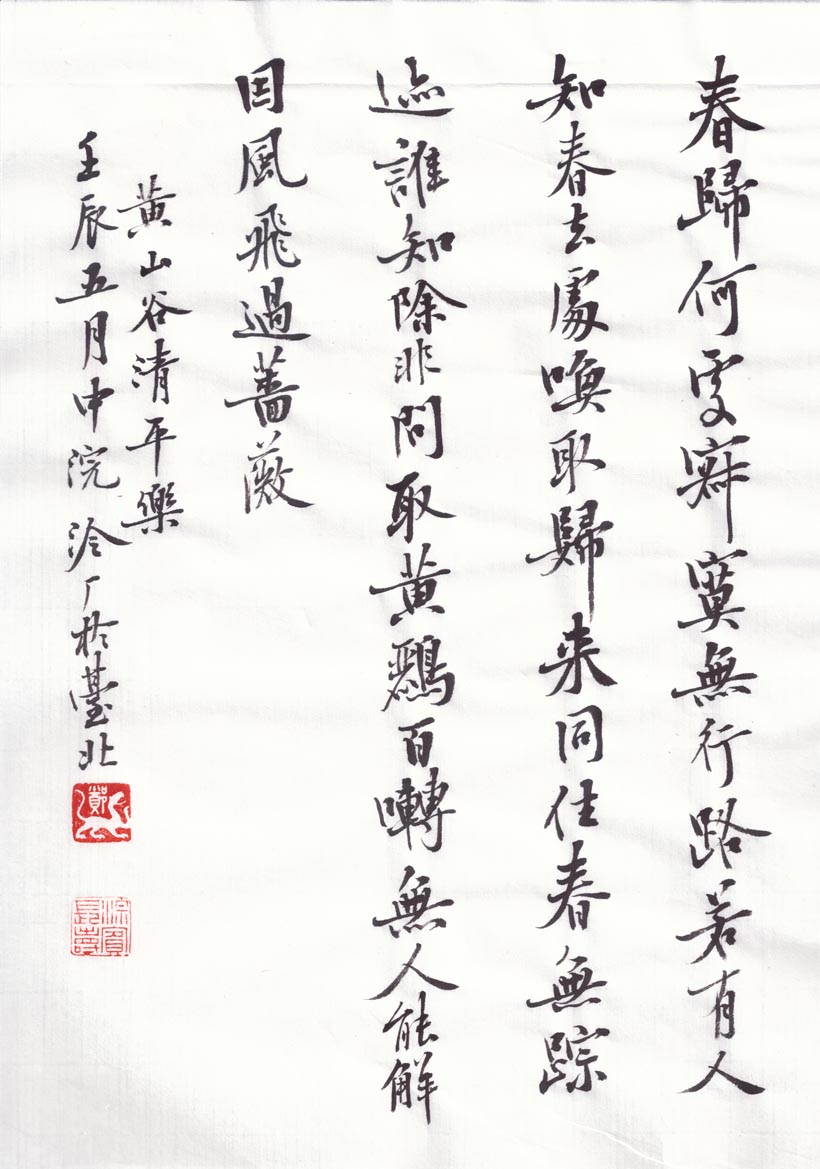 春歸何處寂寞無行路若有人
知春去處喚取歸来同住春無踪
迹誰知除非問取黄鸝百囀無人能解
因風飛過薔薇
黄山谷清平樂
壬辰五月中浣泠厂於臺北